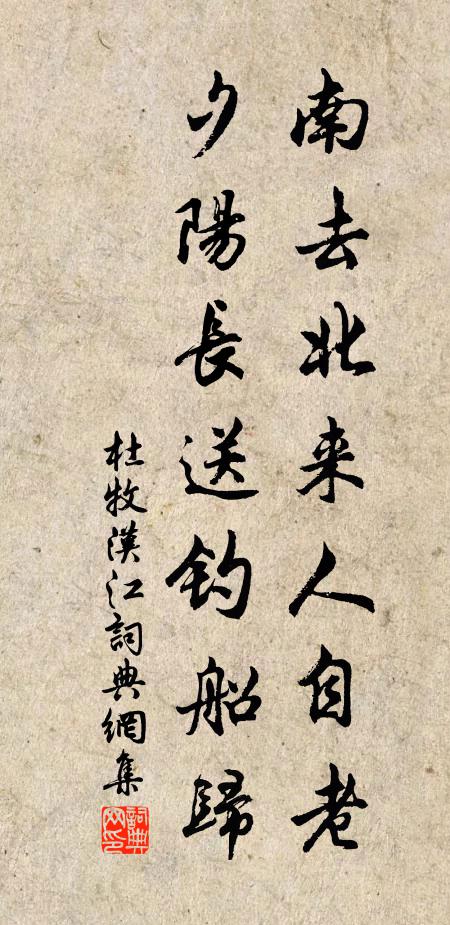 南去北来人自老
夕陽長送釣船歸
杜牧漢江詞典網集
詞典
网印